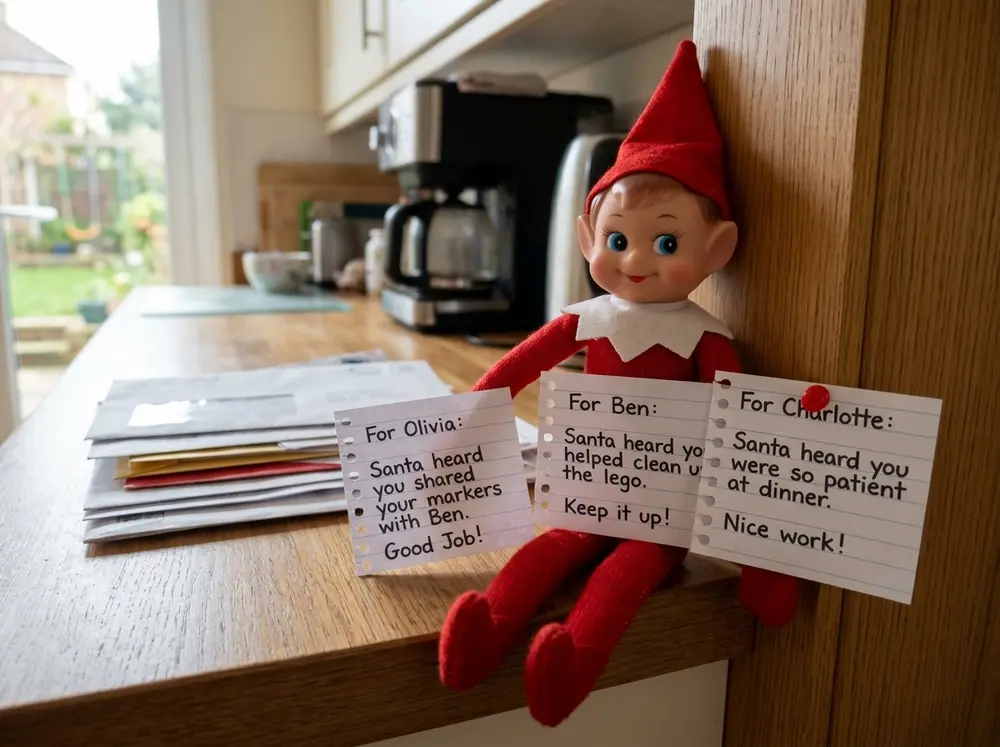 For Olivia:
Santa heard
you shared
your markers
with Ben.
Good Job!
For Ben:
Santa heard
helped clean
the lego.
Keep it up!
For Charlotte:
Santa heard you
were so patient
at dinner.
Nice work!